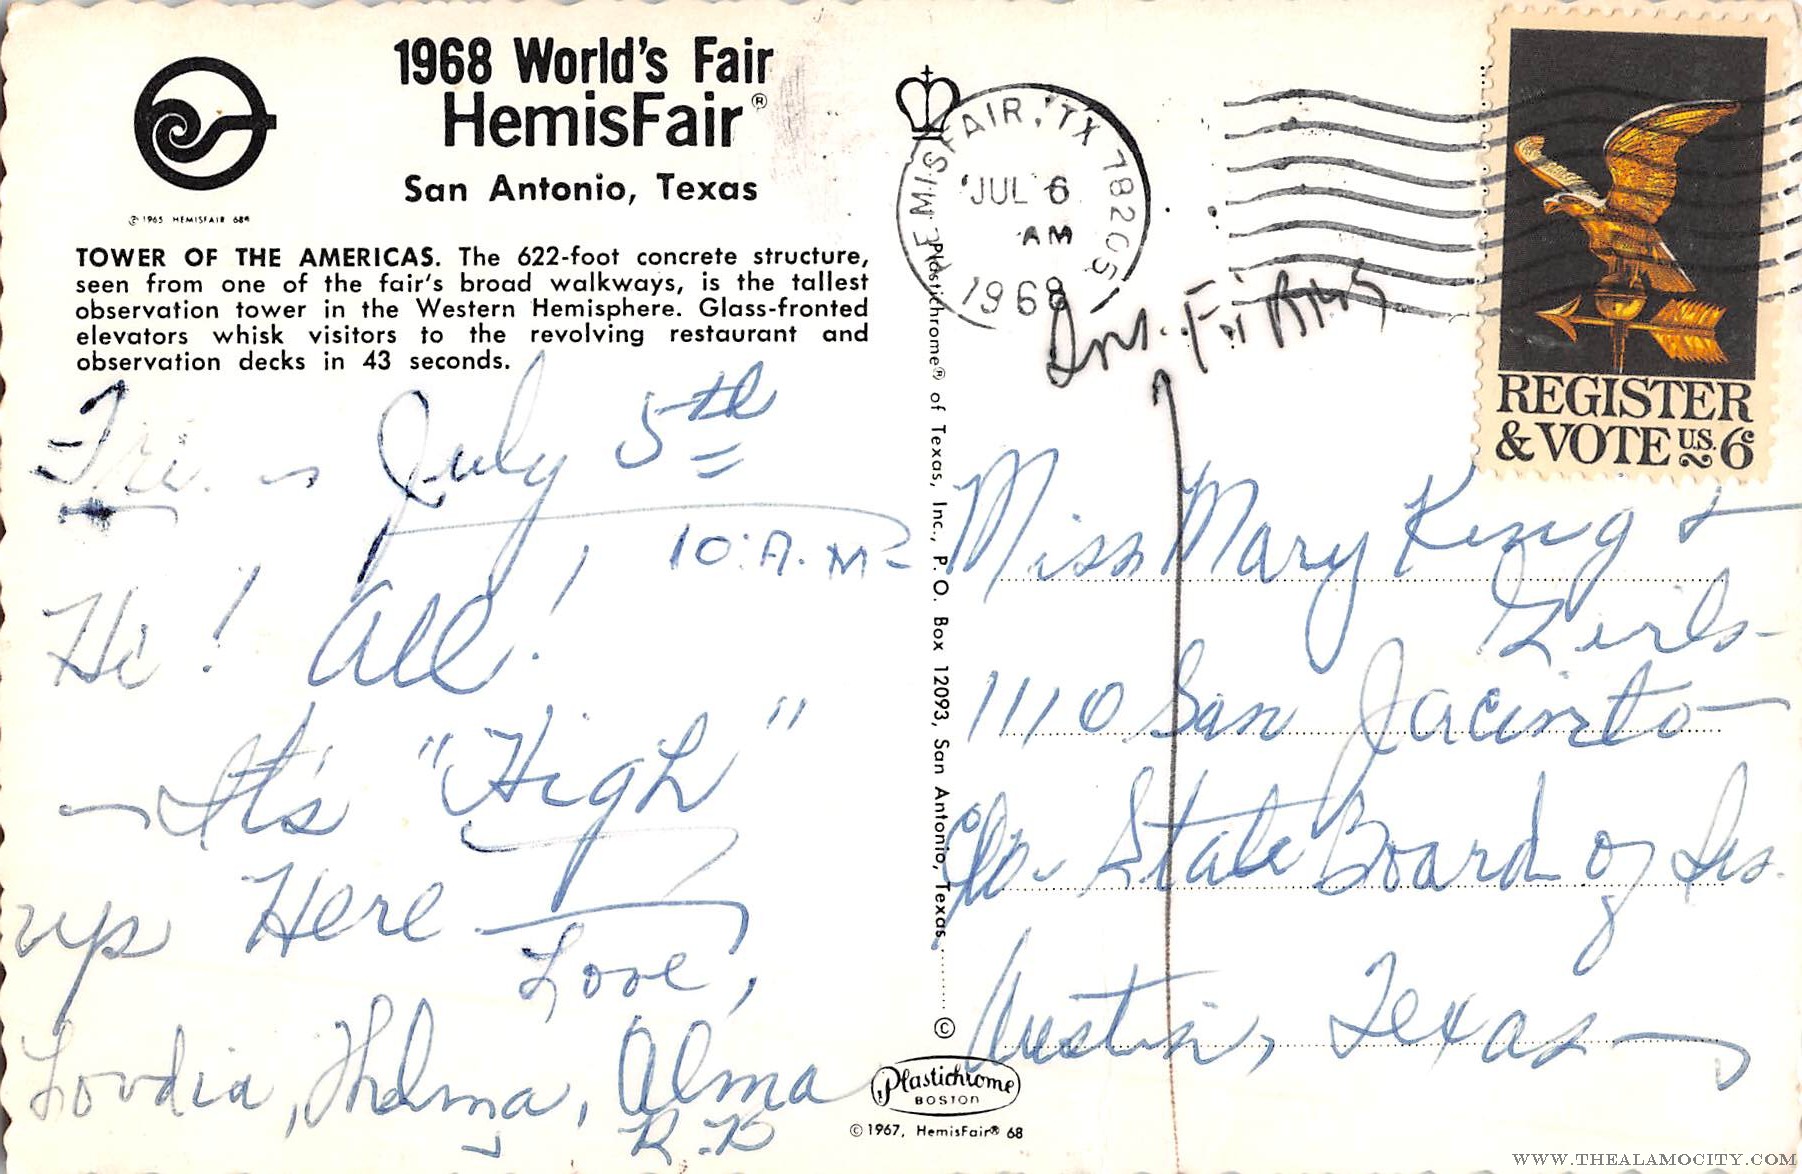 1968 World's Fair
HemisFair®
San Antonio, Texas
© 1965 HEMISFAIR 68®
TOWER OF THE AMERICAS. The 622-foot concrete structure,
seen from one of the fair's broad walkways, is the tallest
observation tower in the Western Hemisphere. Glass-fronted
elevators whisk visitors to the revolving restaurant and
observation decks in 43 seconds.
Fri. July 5th
10:A.M-
Hi! All!
It's "High"
up Here
Love,
Thelma, Alma
Plastichrome® of Texas, Inc., P. O. Box 12093, San Antonio, Texas
©
Plastichrome
BOSTON
© 1967, HemisFair® 68
HEMISFAIR, TX 78205
JUL 6
AM
1968
REGISTER
& VOTE U.S. 6c
Miss Mary King &
Girls-
1110 San Jacinto
c/o State Board of Ins.
Austin, Texas
WWW.THEALAMOCITY.COM